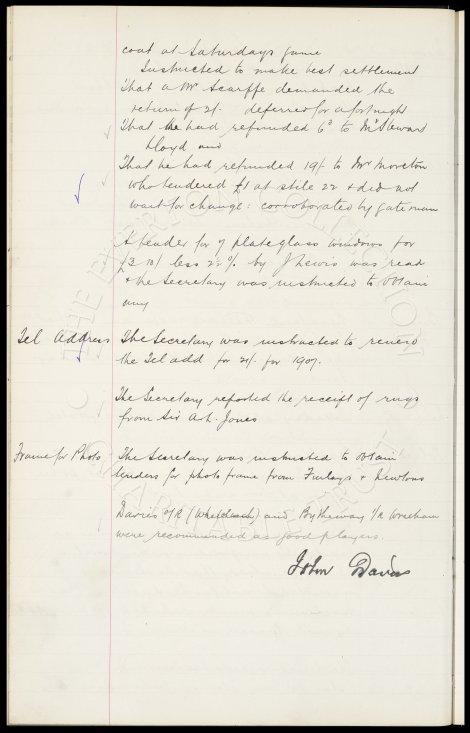 coat at Saturdays game
Instructed to make best settlement
That a Mr Scarffe demanded the
return of 2/- deferred for a fortnight
That he had refunded 6d to Mr Steward
Lloyd and
That he had refunded 19/- to Mr Moreton
who tendered £1 at stile 22 & did not
wait for change: corroborated by gateman
A tender for 7 plateglass windows for
£3 10/ less 2½% by J Lewis was read
& the Secretary was instructed to obtain
any
Tel Address The Secretary was instructed to renew
the Tel add for 21/- for 1907.
The Secretary reported the receipt of rugs
from Sir A.L. Jones
Frame for Photo The Secretary was instructed to obtain
tenders for photo frame from Finlays & Newtons
Davies (Whitchurch) and Bytheway Wrexham
were recommended as good players.
John Davies
THE EVERTON COLLECTION
CHARITABLE TRUST